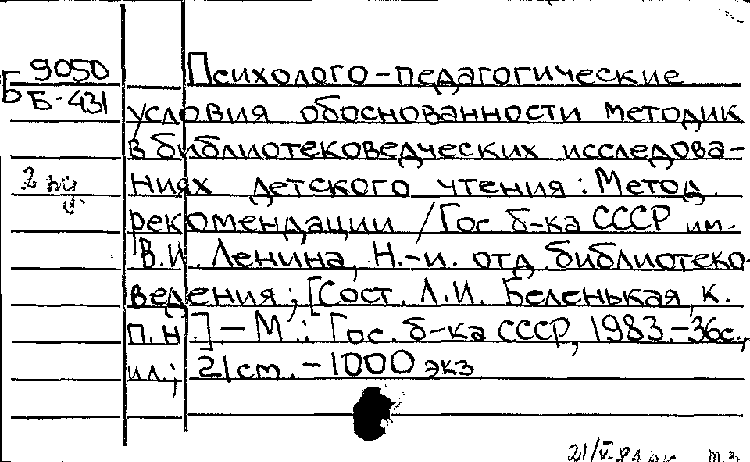 9050
Б Б-431
Психолого-педагогические
условия обоснованности методик
в библиотековедческих исследова-
ниях детского чтения: Метод.
рекомендации / Гос. б-ка СССР им.
В.И. Ленина, Н.-и. отд. библиотеко-
ведения; [Сост. Л.И. Беленькая, к.
п.н.] – М.: Гос. б-ка СССР, 1983.-36с.,
ил.; 21 см. – 1000 экз